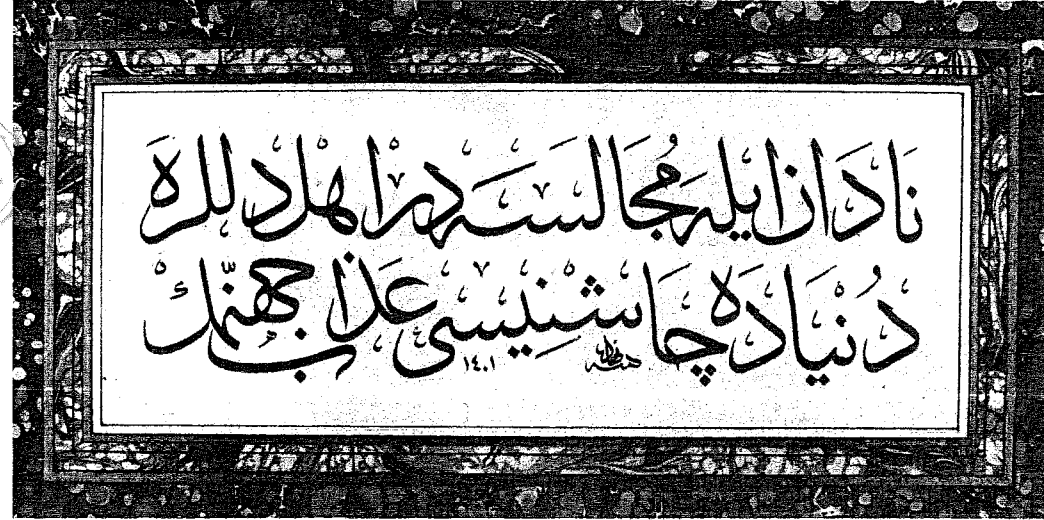 نَادَان ايله مُجَالسَه در اهل دللره
دُنيَادَه چَاشنِيسی عذاب جهنّمك
١٤٠١